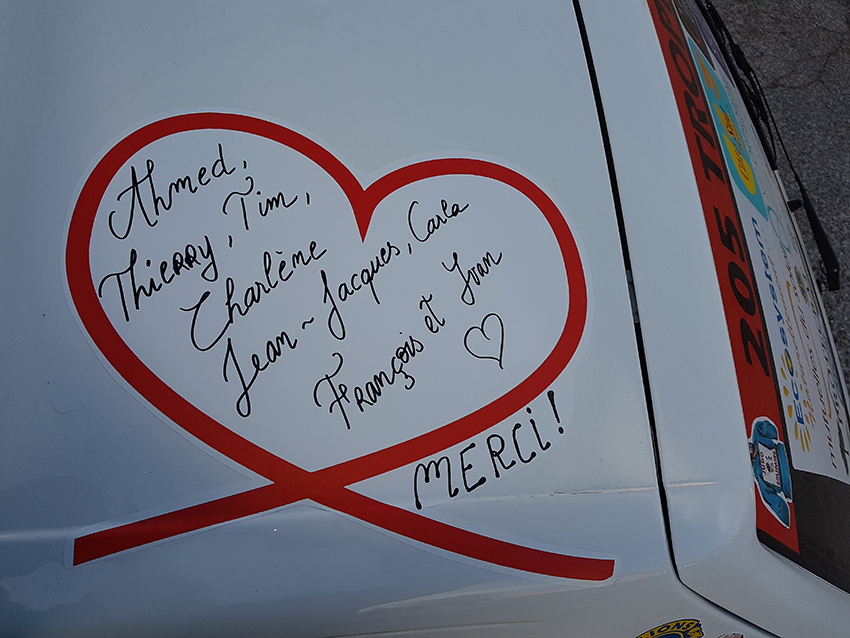 Ahmed,
Thierry, Tim,
Charlène
Jean-Jacques, Carla
François et Ivan
MERCI!
205 TROP
ECO system
LIONS